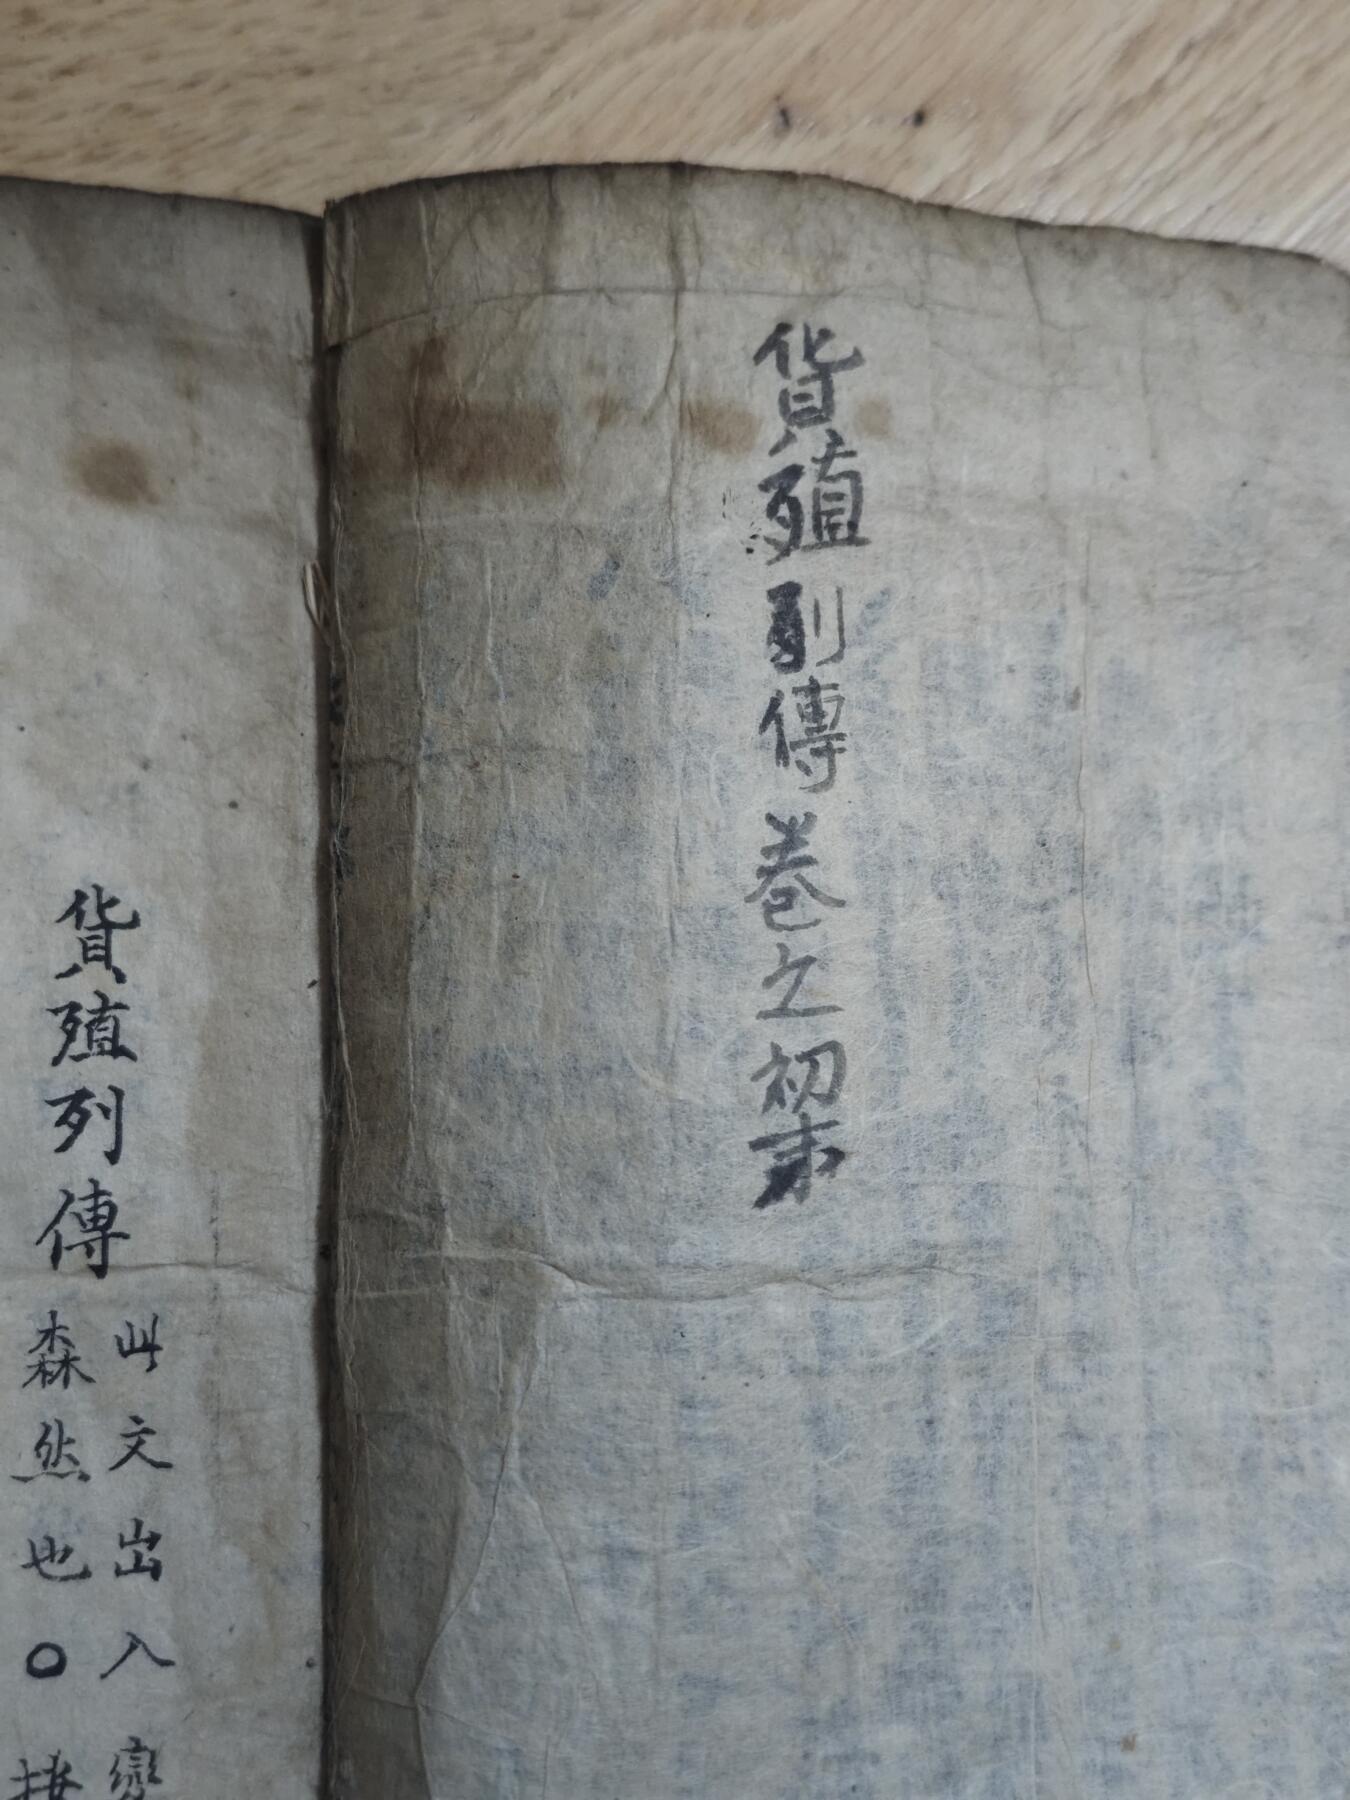 貨殖列傳卷之初末
貨殖列傳
此文出入變
森然也○按